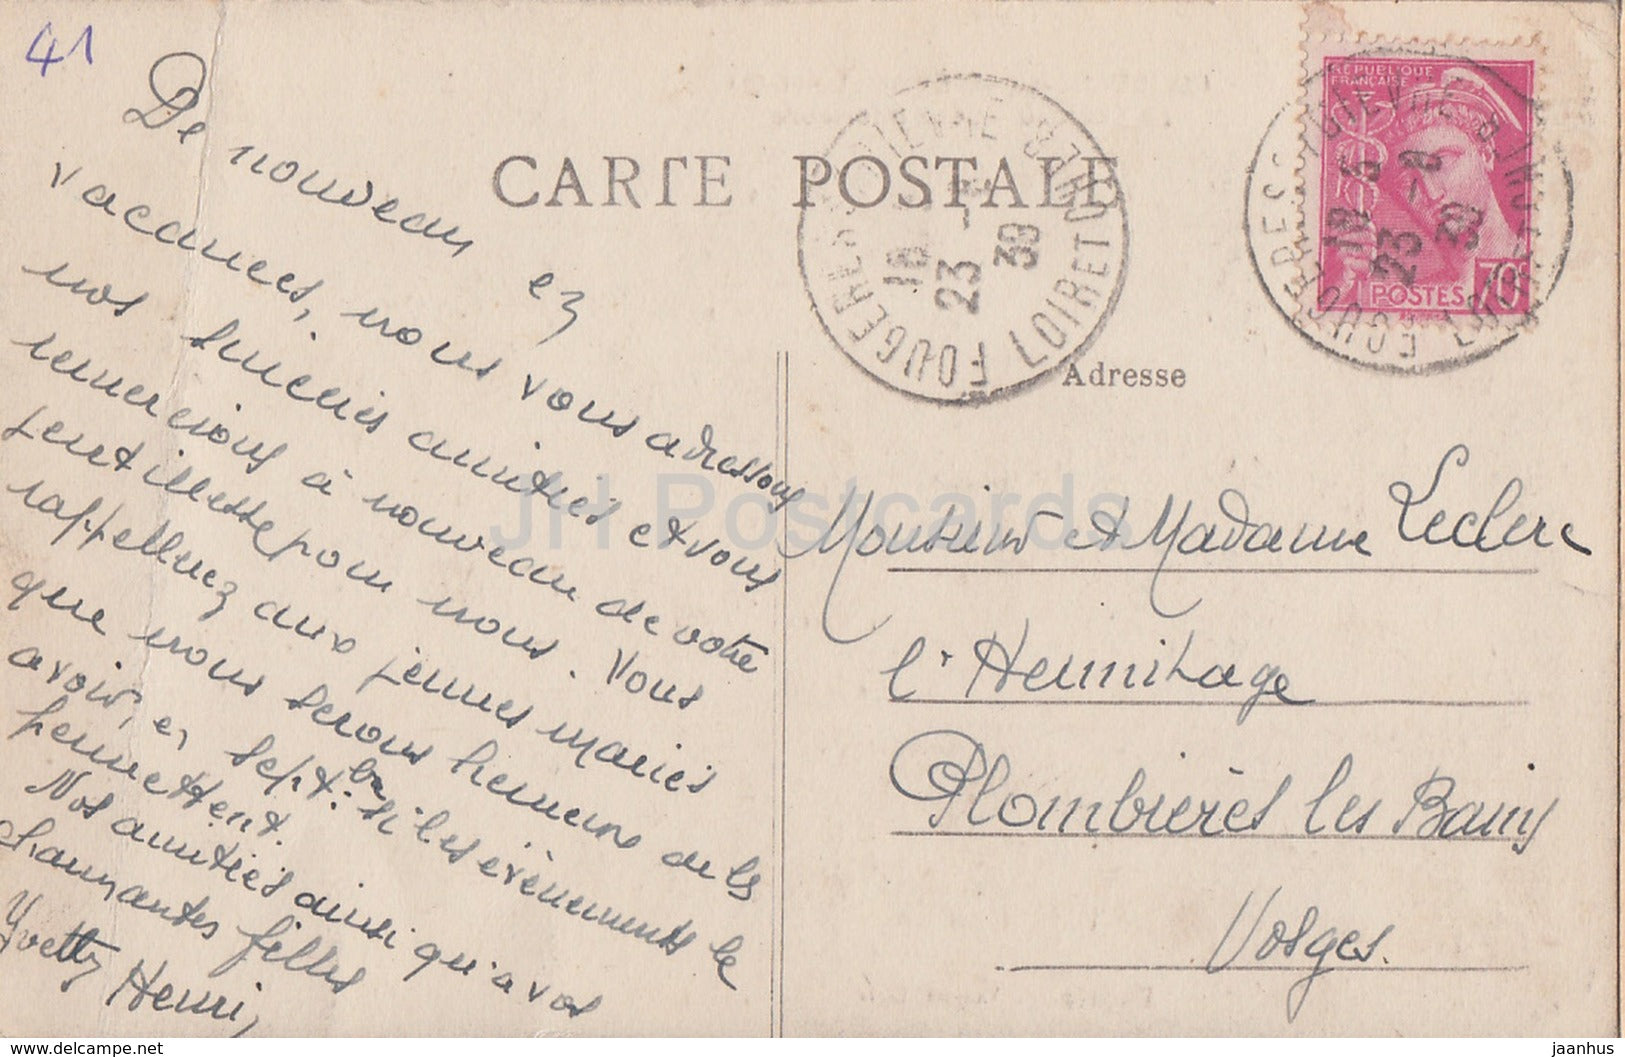 41
CARTE POSTALE
De nouveau en
vacances, nous vous adressons
nos sincères amitiés et vous
remercions à nouveau de votre
gentillesse pour nous. Vous
rappellerez aux jeunes mariés
que nous serons heureux de les
avoir, en sept.bre si les évènements le
permettent
Nos amitiés ainsi qu'à vos
charmantes filles
Yvette, Henri,
REPUBLIQUE
FRANÇAISE
POSTES 70
FOUGEROLLES
18
23 - 8
39
LOIRET
18
23 - 8
39
Adresse
Monsieur et Madame Leclerc
l'Hermitage
Plombières les Bains
Vosges.
JH Postcards
jaanhus
www.delcampe.net